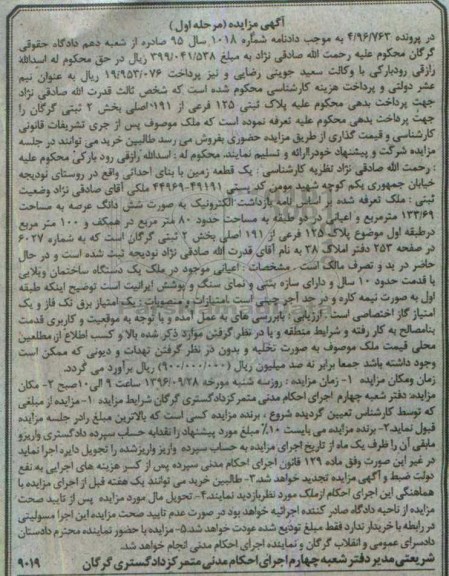 آگهی مزایده (مرحله اول)
در پرونده ۴/۹۶/۷۶۳ به موجب دادنامه شماره ۱۰۱۸ سال ۹۵ صادره از شعبه دهم دادگاه حقوقی
گرگان محکوم علیه رحمت الله صادقی نژاد به مبلغ ۳۹۹/۰۴۱/۵۳۸ ریال در حق محکوم له اسدالله
رازقی رودبارکی با وکالت سعید جوینی رضایی و نیز پرداخت ۱۹/۹۵۳/۰۷۶ ریال به عنوان نیم
عشر دولتی و پرداخت هزینه کارشناسی محکوم شده است که شخص ثالث قدرت الله صادقی نژاد
جهت پرداخت بدهی محکوم علیه پلاک ثبتی ۱۲۵ فرعی از ۱۹۱-اصلی بخش ۲ ثبتی گرگان را
جهت پرداخت بدهی محکوم علیه تعرفه نموده است که ملک موصوف پس از جری تشریفات قانونی
کارشناسی و قیمت گذاری از طریق مزایده حضوری بفروش می رسد طالبین خرید می توانند در جلسه
مزایده شرکت و پیشنهاد خودراارائه و تسلیم نمایند. محکوم له : اسدالله رازقی رود بارکی محکوم علیه
: رحمت الله صادقی نژاد نظریه کارشناسی : یک قطعه زمین با بنای احداثی واقع در روستای نودیجه
خیابان جمهوری یکم کوچه شهید مومن کد پستی ۴۹۱۹۱-۴۴۹۶۹ ملکی آقای صادقی نژاد وضعیت
ثبتی : ملک تعرفه شده بر اساس نامه بازداشت الکترونیک به صورت شش دانگ عرصه به مساحت
۱۳۳/۶۹ مترمربع و اعیانی در دو طبقه به مساحت حدود ۸۰ متر مربع در همکف و ۱۰۰ متر مربع
درطبقه اول موضوع پلاک ۱۲۵ فرعی از ۱۹۱ اصلی بخش ۲ ثبتی گرگان است که به شماره ۶۰۲۷
در صفحه ۲۵۳ دفتر املاک ۳۸ به نام آقای قدرت الله صادقی نژاد نودیجه ثبت شده است و در حال
حاضر در ید و تصرف مالک است . مشخصات : اعیانی موجود در ملک یک دستگاه ساختمان ویلایی
با قدمت حدود ۱۰ سال و دارای سازه بتنی و نمای سنگ و پوشش ایرانیت است توضیح اینکه طبقه
اول به صورت نیمه کاره و در حد آجر چینی است امتیازات و منصوبات : یک امتیاز برق تک فاز و یک
امتیاز گاز اختصاصی است . ارزیابی : بابررسی های به عمل آمده و با توجه به موقعیت و کاربری قدمت
بنامصالح به کار رفته و شرایط منطقه و با در نظر گرفتن موارد ذکر شده بالا و کسب اطلاع از مطلعین
محلی قیمت ملک موصوف به صورت تخلیه و بدون در نظر گرفتن تهدات و دیونی که ممکن است
وجود داشته باشد جمعا برابر نه صد میلیون ریال (۹۰۰/۰۰۰/۰۰۰) ریال برآورد می گردد.
زمان ومکان مزایده ۱- زمان مزایده : روزسه شنبه مورخه ۱۳۹۶/۰۹/۲۸ ساعت ۹ الی۱۰صبح ۲- مکان
مزایده: دفتر شعبه چهارم اجرای احکام مدنی متمرکزدادگستری گرگان شرایط مزایده ۱-مزایده از مبلغی
که توسط کارشناس تعیین گردیده شروع ، برنده مزایده کسی است که بالاترین مبلغ رادر جلسه مزایده
قبول نماید۲- برنده مزایده می بایست ۱۰٪مبلغ مورد پیشنهاد را نقدابه حساب سپرده دادگستری واریزو
مابقی آن را ظرف یک ماه از تاریخ اجرای مزایده به حساب سپرده واریز واریزشده را تحویل دایره اجرا نماید
در غیر این صورت وفق ماده ۱۲۹ قانون اجرای احکام مدنی سپرده پس از کسر هزینه های اجرایی به نفع
دولت ضبط و آگهی مزایده تجدید خواهد شد.۳- طالبین خرید می توانند یک هفته قبل از اجرای مزایده با
هماهنگی این اجرای احکام ازملک مورد نظربازدید نمایند.۴- تحویل مال مورد مزایده پس از تایید صحت
مزایده از ناحیه دادگاه صادر کننده اجرائیه خواهد بود در صورت عدم تایید صحت مزایده این اجرا مسولیتی
در رابطه با خریدار ندارد فقط مبلغ تودیع شده عودت خواهد شد.۵- مزایده با حضور نماینده محترم دادستان
دادسرای عمومی و انقلاب گرگان و نماینده اجرای احکام مدنی انجام خواهد شد.
شریعتی مدیر دفتر شعبه چهارم اجرای احکام مدنی متمرکز دادگستری گرگان ۹۰۱۹